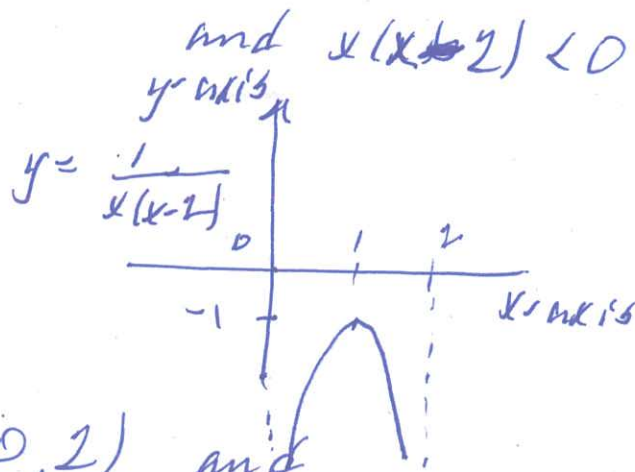 and x(x-2) < 0
y-axis
y = 1/(x(x-2))
0 1 2
x-axis
-1
0, 2) and